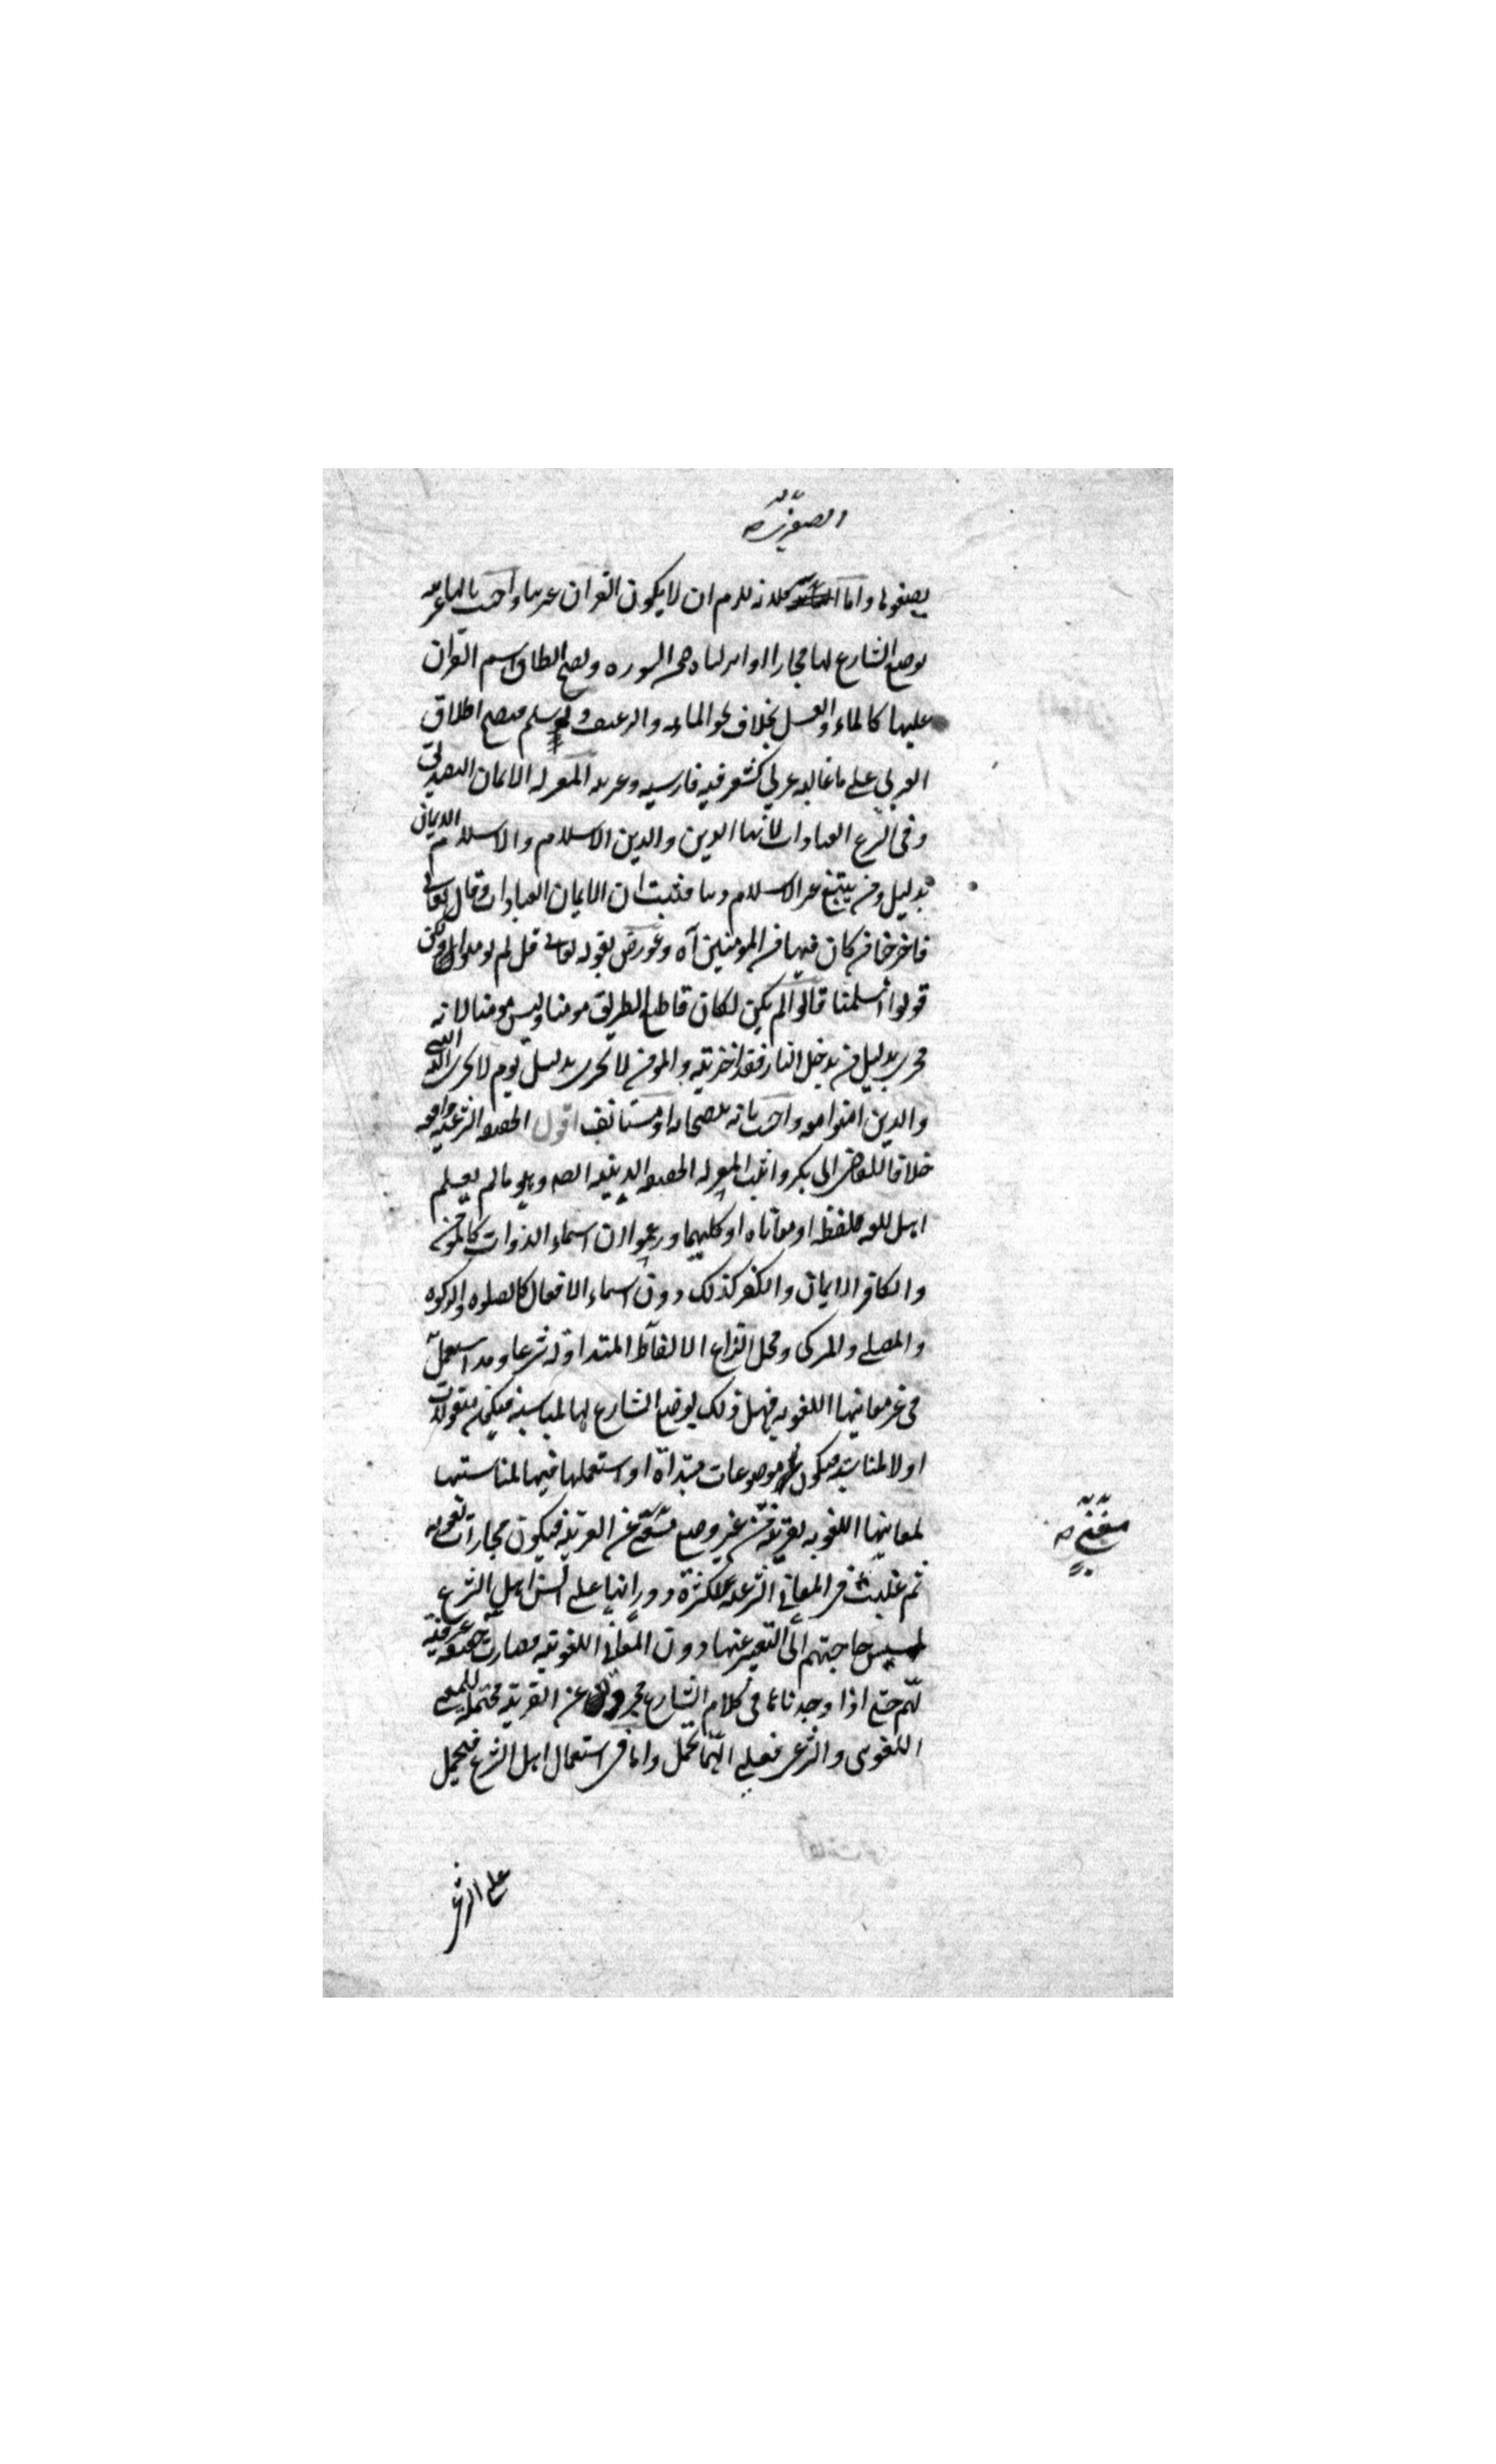 الصغرى
يصفولها واما الثانية فلانه يلزم ان لا يكون القرآن عربيا واجيب بانها عربية
بوضع الشارع لها مجازا او انزلناه ضمير السورة ويصح اطلاق اسم القرآن
عليها كالماء والعسل بخلاف نحو المائة والرغيف ولو سلم فيصح اطلاق
العربي على ما غالبه عربي كشعر فيه فارسية وعربية المعتزلة الايمان التصديق
وفي الشرع العبادات لانها الدين والدين الاسلام والاسلام الايمان
بدليل ومن يبتغ غير الاسلام دينا فثبت ان الايمان العبادات وقال تعالى
فاخرجنا من كان فيها من المومنين آه وعورض بقوله تعالى قل لم تومنوا ولكن
قولوا اسلمنا قالوا لو لم يكن لكان قاطع الطريق مومنا وليس مومنا لانه
مخزى بدليل من يدخل النار فقد اخزيته والمومن لا يخزى بدليل يوم لا يخزى الله النبي
والذين امنوا معه واجيب بانه للصحابة او مستانف اقول الحقيقة الشرعية واقعة
خلافا للقاضي ابي بكر واثبت المعتزلة الحقيقة الدينية ايضا وهي ما لم يعلم
اهل اللغة لفظه او معناه او كليهما وزعموا ان اسماء الذوات كالمومن
والكافر والايمان والكفر كذلك دون اسماء الافعال كالصلوة والزكوة
والمصلي والمزكي ومحل النزاع الالفاظ المتداولة شرعا وقد استعملت
في غير معانيها اللغوية فهل ذلك بوضع الشارع لها لمناسبة فيكون منقولات
او لا لمناسبة فيكون موضوعات مبتداة او استعملها فيها لمناسبتها
لمعانيها اللغوية بقرينة من غير وضع مغن عن القرينة فيكون مجازات لغوية
مغني
ثم غلبت في المعاني الشرعية لكثرة دورانها على السن اهل الشرع
لمسيس حاجتهم الى التعبير عنها دون المعاني اللغوية فصارت حقيقة عرفية
لهم حتى اذا وجدناها في كلام الشارع مجردة عن القرينة محتملة للمعنى
اللغوي والشرعي فعلى ايهما تحمل واما في استعمال اهل الشرع فيحمل
على الشر